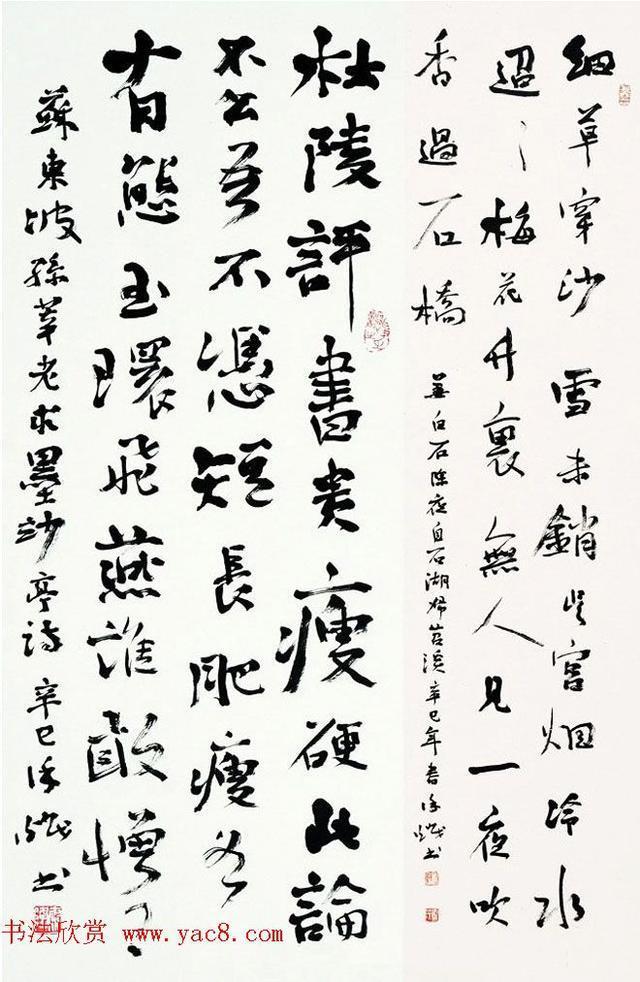 細草穿沙雪未銷吳宮烟冷水
迢〻梅花竹裏無人見一夜吹
香過石橋
姜白石除夜自石湖歸苕溪辛巳年書
杜陵評書貴瘦硬此論
不公吾不憑短長肥瘦各
有態玉環飛燕誰敢憎
蘇東坡孫莘老求墨妙亭詩辛巳書
书法欣赏 www.yac8.com